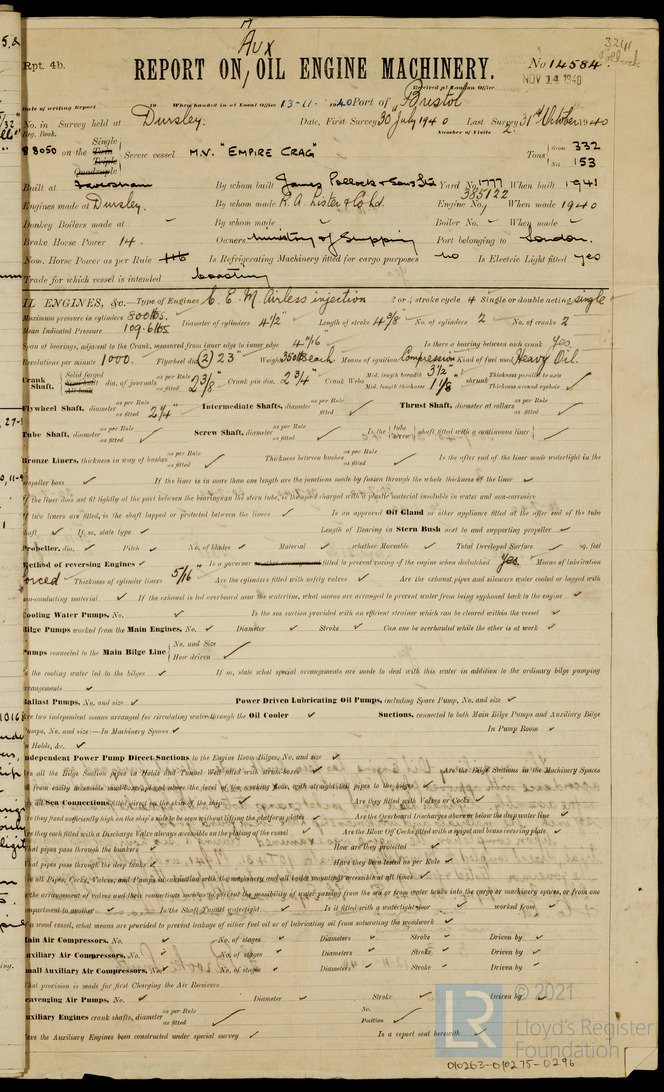 Aux
Rpt. 4b.
REPORT ON OIL ENGINE MACHINERY.
No 14584.
3241
Pollock
Received at London Office
NOV 14 1940
Date of writing Report 19 When handed in at Local Office 13-11- 1940 Port of Bristol
No. in Survey held at Dursley. Date, First Survey 30 July 1940 Last Survey 31st October 1940
Reg. Book. Number of Visits 2
88050 on the Single Twin Triple Quadruple Screw vessel M.V. "EMPIRE CRAG" Tons Gross 332 Net 153
Built at Faversham By whom built James Pollock & Sons Ltd Yard No. 1777 When built 1941
Engines made at Dursley. By whom made R. A. Lister & Co Ltd. Engine No. 385122 When made 1940
Donkey Boilers made at By whom made Boiler No. When made
Brake Horse Power 14. Owners Ministry of Shipping Port belonging to London.
Nom. Horse Power as per Rule Is Refrigerating Machinery fitted for cargo purposes no Is Electric Light fitted yes
Trade for which vessel is intended Coasting
IL ENGINES, &c. Type of Engines C. E. M. Airless injection 2 or 4 stroke cycle 4 Single or double acting single
Maximum pressure in cylinders 800 lbs. Diameter of cylinders 4 1/2" Length of stroke 4 3/8" No. of cylinders 2 No. of cranks 2
Mean Indicated Pressure 109.6 lbs
Span of bearings, adjacent to the Crank, measured from inner edge to inner edge 4 11/16" Is there a bearing between each crank Yes.
Revolutions per minute 1000. Flywheel dia. (2) 23" Weight 350 lbs each Means of ignition Compression Kind of fuel used Heavy Oil.
Crank Shaft, Solid forged Semi built All built dia. of journals as per Rule as fitted 2 3/8" Crank pin dia. 2 3/4" Crank Webs Mid. length breadth 3 1/2" Mid. length thickness 1 1/8" shrunk Thickness parallel to axis Thickness around eyehole
Flywheel Shaft, diameter as per Rule as fitted 2 1/4" Intermediate Shafts, diameter as per Rule as fitted Thrust Shaft, diameter at collars as per Rule as fitted
Tube Shaft, diameter as per Rule as fitted Screw Shaft, diameter as per Rule as fitted Is the tube screw shaft fitted with a continuous liner
Bronze Liners, thickness in way of bushes as per Rule as fitted Thickness between bushes as per Rule as fitted Is the after end of the liner made watertight in the
propeller boss If the liner is in more than one length are the junctions made by fusion through the whole thickness of the liner
If the liner does not fit tightly at the part between the bearings in the stern tube, is the space charged with a plastic material insoluble in water and non-corrosive
If two liners are fitted, is the shaft lapped or protected between the liners Is an approved Oil Gland or other appliance fitted at the after end of the tube
shaft If so, state type Length of Bearing in Stern Bush next to and supporting propeller
Propeller, dia. Pitch No. of blades Material whether Moveable Total Developed Surface sq. feet
Method of reversing Engines Is a governor or other arrangement fitted to prevent racing of the engine when declutched Yes. Means of lubrication
forced Thickness of cylinder liners 5/16" Are the cylinders fitted with safety valves Are the exhaust pipes and silencers water cooled or lagged with
non-conducting material If the exhaust is led overboard near the waterline, what means are arranged to prevent water being syphoned back to the engine
Cooling Water Pumps, No. Is the sea suction provided with an efficient strainer which can be cleared within the vessel
Bilge Pumps worked from the Main Engines, No. Diameter Stroke Can one be overhauled while the other is at work
Pumps connected to the Main Bilge Line No. and Size How driven
Is the cooling water led to the bilges If so, state what special arrangements are made to deal with this water in addition to the ordinary bilge pumping
arrangements
Ballast Pumps, No. and size Power Driven Lubricating Oil Pumps, including Spare Pump, No. and size
Are two independent means arranged for circulating water through the Oil Cooler Suctions, connected to both Main Bilge Pumps and Auxiliary Bilge
Pumps, No. and size:—In Machinery Spaces In Pump Room
In Holds, &c.
Independent Power Pump Direct Suctions to the Engine Room Bilges, No. and size
Are all the Bilge Suction pipes in Holds and Tunnel Well fitted with strum-boxes Are the Bilge Suctions in the Machinery Spaces
led from easily accessible mud boxes, placed above the level of the working floor, with straight tail pipes to the bilges
Are all Sea Connections fitted direct on the skin of the ship Are they fitted with Valves or Cocks
Are they fixed sufficiently high on the ship's side to be seen without lifting the platform plates Are the Overboard Discharges above or below the deep water line
Are they each fitted with a Discharge Valve always accessible on the plating of the vessel Are the Blow Off Cocks fitted with a spigot and brass covering plate
What pipes pass through the bunkers How are they protected
What pipes pass through the deep tanks Have they been tested as per Rule
Are all Pipes, Cocks, Valves, and Pumps in connection with the machinery and all boiler mountings accessible at all times
Is the arrangement of valves and their connections such as to prevent the possibility of water passing from the sea or from water tanks into the cargo or machinery spaces, or from one
compartment to another Is the Shaft Tunnel watertight Is it fitted with a watertight door worked from
If a wood vessel, what means are provided to prevent leakage of either fuel oil or of lubricating oil from saturating the woodwork
Main Air Compressors, No. No. of stages Diameters Stroke Driven by
Auxiliary Air Compressors, No. No. of stages Diameters Stroke Driven by
Small Auxiliary Air Compressors, No. No. of stages Diameters Stroke Driven by
What provision is made for first Charging the Air Receivers
Scavenging Air Pumps, No. Diameter Stroke Driven by
Auxiliary Engines crank shafts, diameter as per Rule as fitted No. Position
Have the Auxiliary Engines been constructed under special survey Is a report sent herewith
LR
© 2021
Lloyd's Register
Foundation
010263-010275-0296